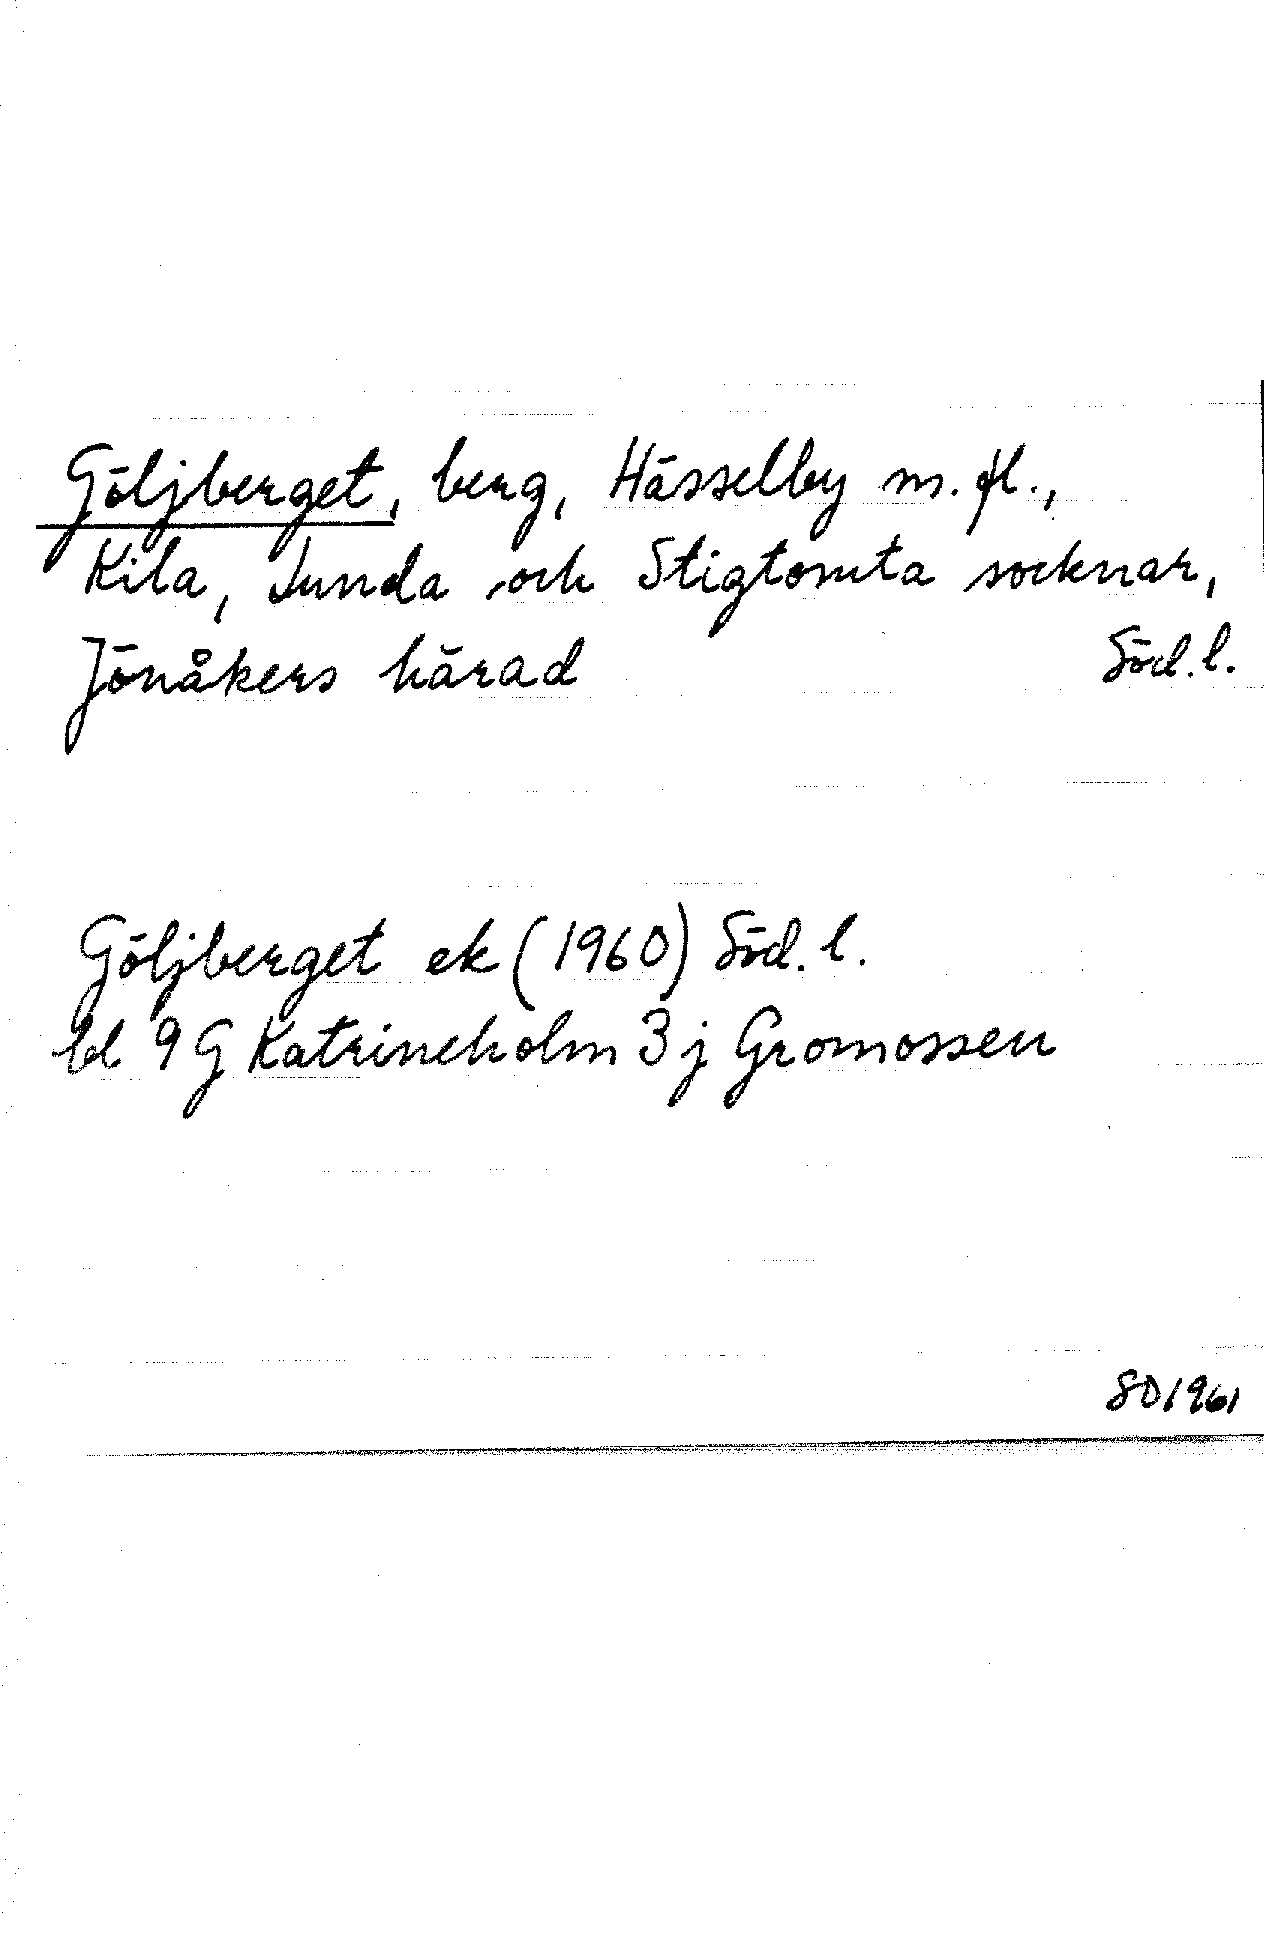 Göljberget, berg, Hässelby m. fl.,
Kila, Lunda och Stigtomta socknar,
Jönåkers härad Söd. l.
Göljberget ek (1960) Söd. l.
bl 9 G Katrineholm 3 j Gromossen
SD 1961